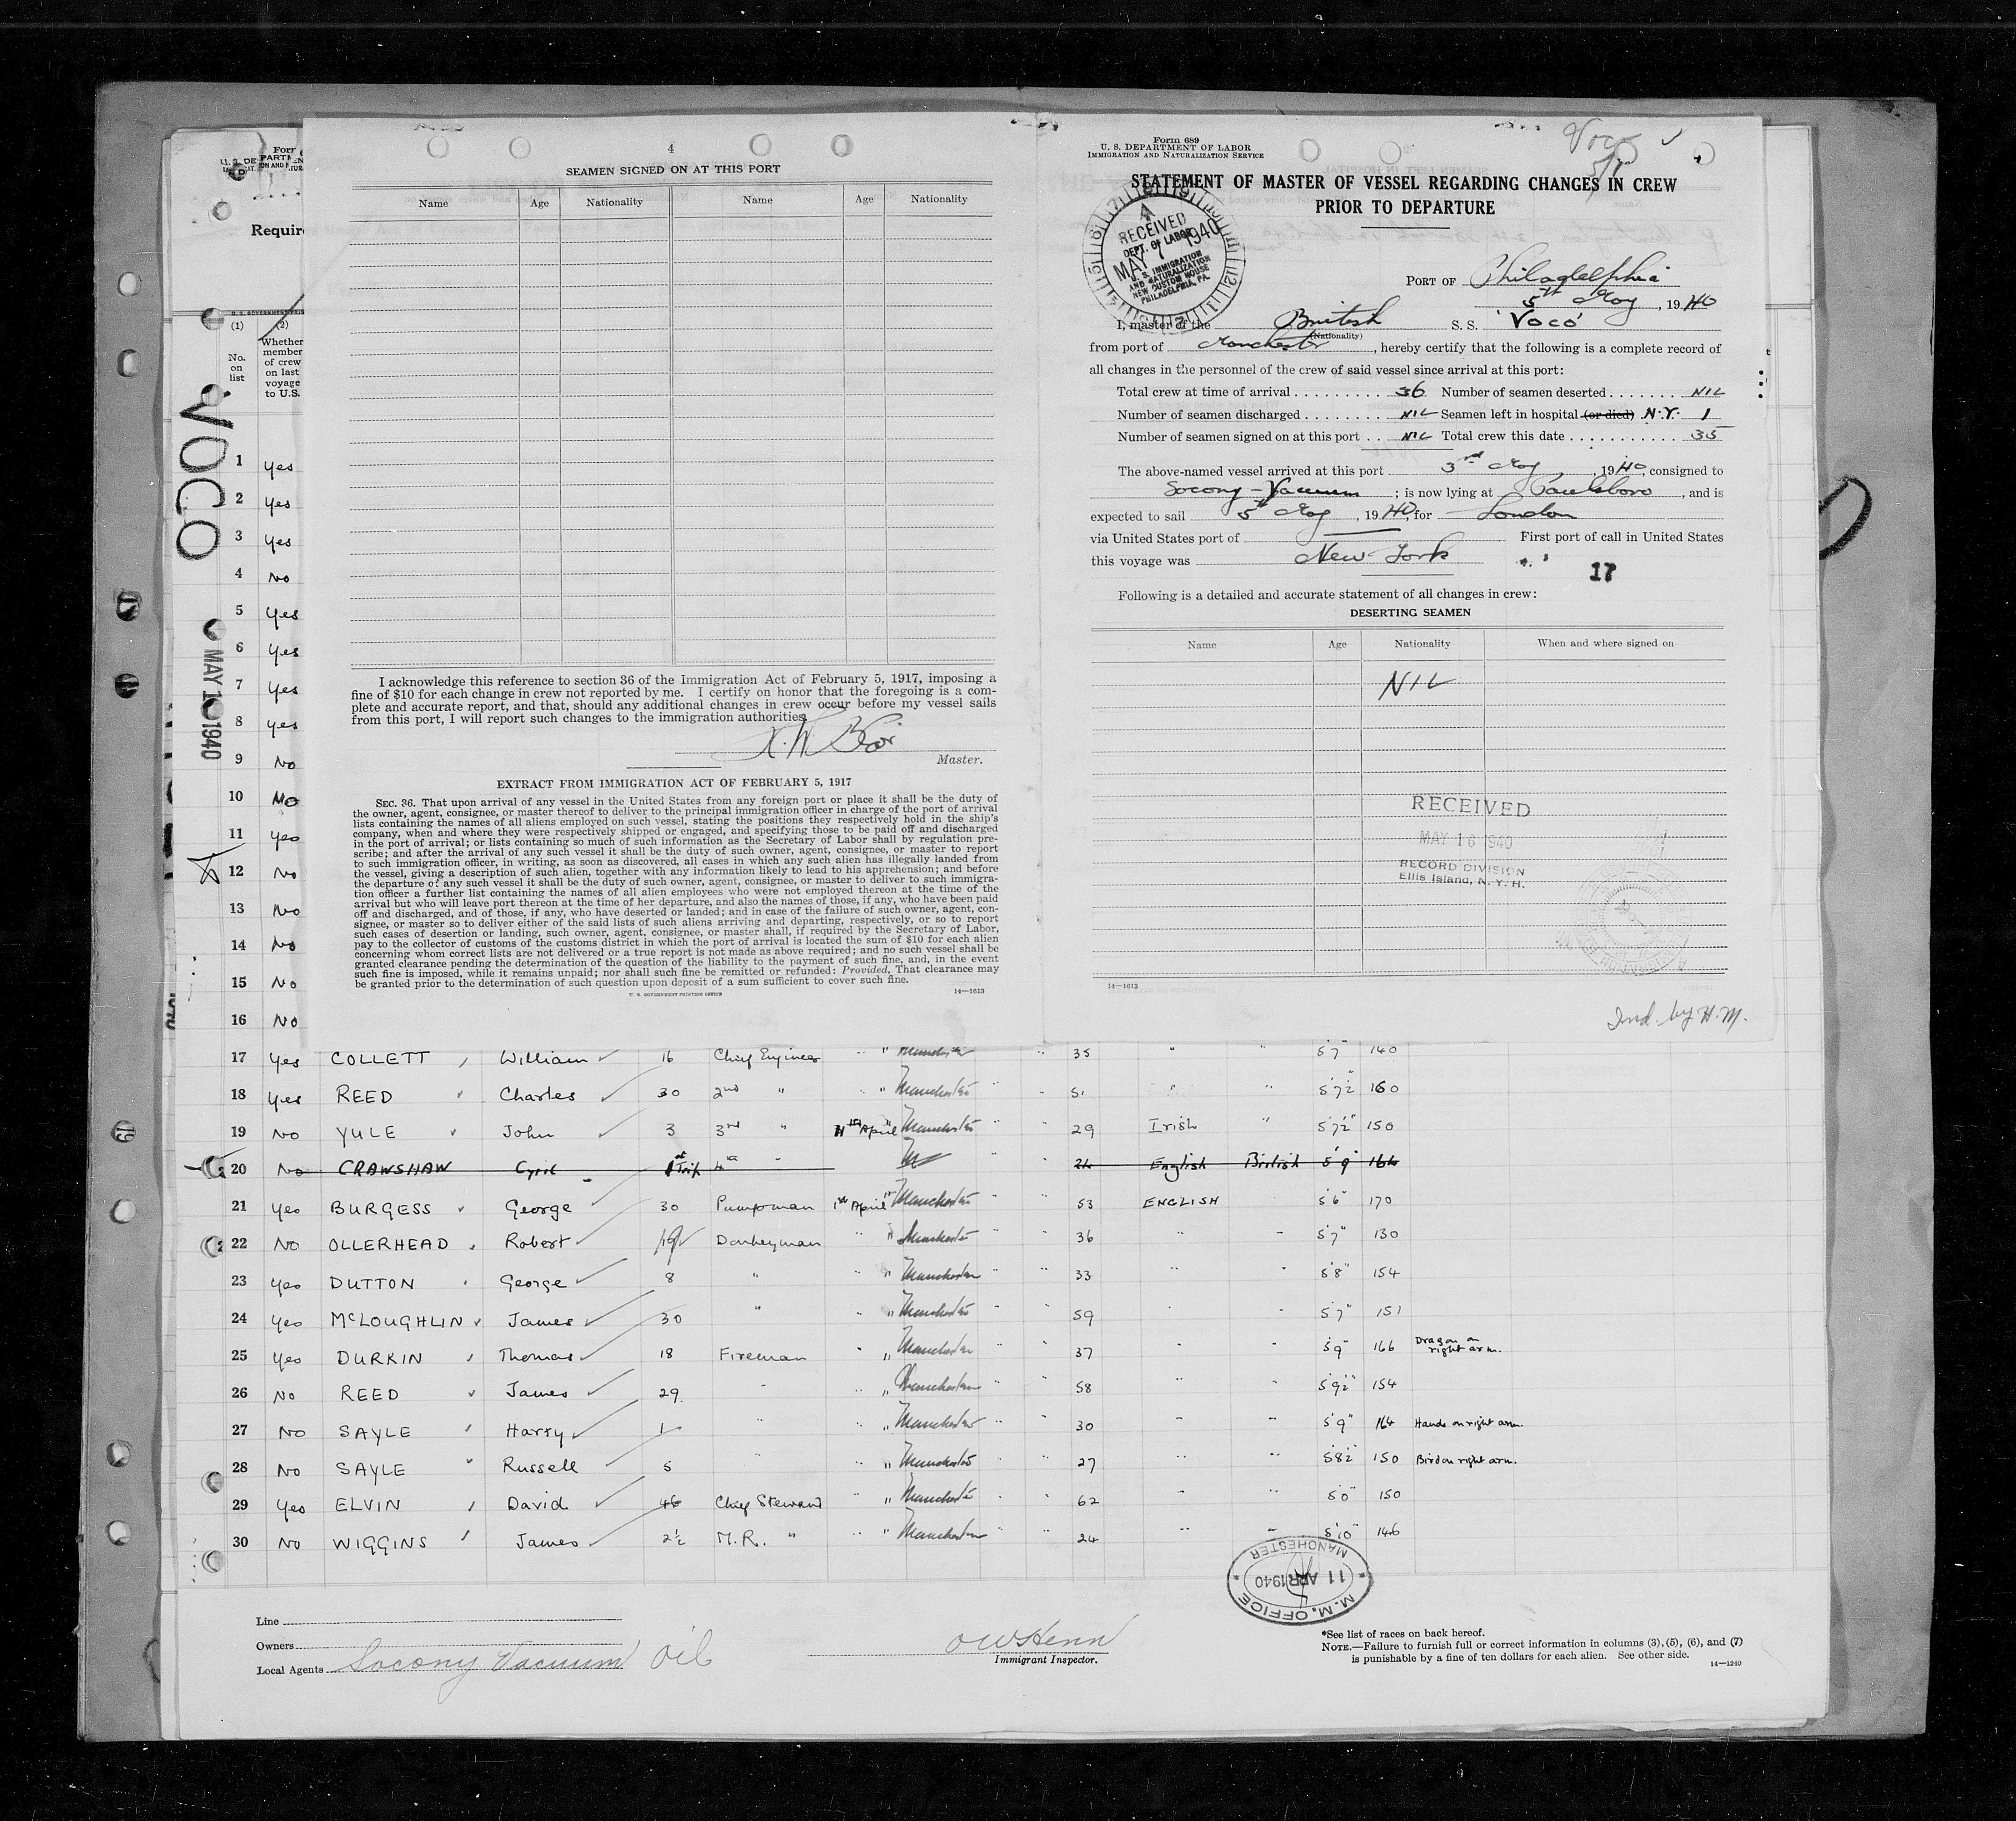 4
SEAMEN SIGNED ON AT THIS PORT
Name Age Nationality Name Age Nationality
I acknowledge this reference to section 36 of the Immigration Act of February 5, 1917, imposing a
fine of $10 for each change in crew not reported by me. I certify on honor that the foregoing is a com-
plete and accurate report, and that, should any additional changes in crew occur before my vessel sails
from this port, I will report such changes to the immigration authorities
Master.
EXTRACT FROM IMMIGRATION ACT OF FEBRUARY 5, 1917
SEC. 36. That upon arrival of any vessel in the United States from any foreign port or place it shall be the duty of
the owner, agent, consignee, or master thereof to deliver to the principal immigration officer in charge of the port of arrival
lists containing the names of all aliens employed on such vessel, stating the positions they respectively hold in the ship's
company, when and where they were respectively shipped or engaged, and specifying those to be paid off and discharged
in the port of arrival; or lists containing so much of such information as the Secretary of Labor shall by regulation pre-
scribe; and after the arrival of any such vessel it shall be the duty of such owner, agent, consignee, or master to report
to such immigration officer, in writing, as soon as discovered, all cases in which any such alien has illegally landed from
the vessel, giving a description of such alien, together with any information likely to lead to his apprehension; and before
the departure of any such vessel it shall be the duty of such owner, agent, consignee, or master to deliver to such immigra-
tion officer a further list containing the names of all alien employees who were not employed thereon at the time of the
arrival but who will leave port thereon at the time of her departure, and also the names of those, if any, who have been paid
off and discharged, and of those, if any, who have deserted or landed; and in case of the failure of such owner, agent, con-
signee, or master so to deliver either of the said lists of such aliens arriving and departing, respectively, or so to report
such cases of desertion or landing, such owner, agent, consignee, or master shall, if required by the Secretary of Labor,
pay to the collector of customs of the customs district in which the port of arrival is located the sum of $10 for each alien
concerning whom correct lists are not delivered or a true report is not made as above required; and no such vessel shall be
granted clearance pending the determination of the question of the liability to the payment of such fine, and, in the event
such fine is imposed, while it remains unpaid; nor shall such fine be remitted or refunded: Provided, That clearance may
be granted prior to the determination of such question upon deposit of a sum sufficient to cover such fine.
U. S. GOVERNMENT PRINTING OFFICE 14—1613
Form 689
U. S. DEPARTMENT OF LABOR
IMMIGRATION AND NATURALIZATION SERVICE
Voco
STATEMENT OF MASTER OF VESSEL REGARDING CHANGES IN CREW
PRIOR TO DEPARTURE
RECEIVED
DEPT. OF LABOR
MAY 7 1940
U. S. IMMIGRATION
AND NATURALIZATION
NEW CUSTOM HOUSE
PHILADELPHIA, PA.
PORT OF Philadelphia
5th May, 1940
I, master of the British S. S. 'Voco'
(Nationality)
from port of Manchester, hereby certify that the following is a complete record of
all changes in the personnel of the crew of said vessel since arrival at this port:
Total crew at time of arrival 36 Number of seamen deserted NIL
Number of seamen discharged NIL Seamen left in hospital (or died) N.Y. 1
Number of seamen signed on at this port NIL Total crew this date 35
The above-named vessel arrived at this port 3rd May, 1940, consigned to
Socony-Vacuum; is now lying at Paulsboro, and is
expected to sail 5th May, 1940, for London
via United States port of — First port of call in United States
this voyage was New York
17
Following is a detailed and accurate statement of all changes in crew:
DESERTING SEAMEN
Name Age Nationality When and where signed on
NIL
RECEIVED
MAY 16 1940
RECORD DIVISION
Ellis Island, N. Y. H.
14—1613
Ind. by H.M.
Requir
(1) (2)
No. on list
Whether member of crew on last voyage to U.S.
VOCO
MAY 1 1940
1 Yes
2 Yes
3 Yes
4 No
5 Yes
6 Yes
7 Yes
8 Yes
9 No
10 No
11 Yes
12 No
13 No
14 No
15 No
16 No
17 Yes COLLETT William 16 Chief Engineer " " Manchester " 35 " " 5'7" 140
18 Yes REED Charles 30 2nd " " " Manchester " " 51 " " 5'7½" 160
19 No YULE John 3 3rd " 11th April Manchester " " 29 Irish " 5'7½" 150
20 No CRAWSHAW Cyril 1st Trip 4th " " " 24 English British 5'9" 164
21 Yes BURGESS George 30 Pumpman 1st April " Manchester " " 53 ENGLISH 5'6" 170
22 No OLLERHEAD Robert 19 Donkeyman " " Manchester " " 36 " " 5'7" 130
23 Yes DUTTON George 8 " " " Manchester " " 33 " " 5'8" 154
24 Yes McLOUGHLIN James 30 " " " Manchester " " 59 " " 5'7" 151
25 Yes DURKIN Thomas 18 Fireman " " Manchester " " 37 " " 5'9" 166 Dragon on right arm.
26 No REED James 29 " " " Manchester " " 58 " " 5'9½" 154
27 No SAYLE Harry 1 " " " Manchester " " 30 " " 5'9" 164 Hands on right arm.
28 No SAYLE Russell 5 " " " Manchester " " 27 " " 5'8½" 150 Bird on right arm.
29 Yes ELVIN David 46 Chief Steward " " Manchester " " 62 " " 5'0" 150
30 No WIGGINS James 2½ M.R. " " " Manchester " " 24 " " 5'10" 146
M.M. OFFICE
11 APR 1940
MANCHESTER
Line
Owners
Local Agents Socony Vacuum Oil
Immigrant Inspector.
*See list of races on back hereof.
NOTE.—Failure to furnish full or correct information in columns (3), (5), (6), and (7)
is punishable by a fine of ten dollars for each alien. See other side.
14—1240